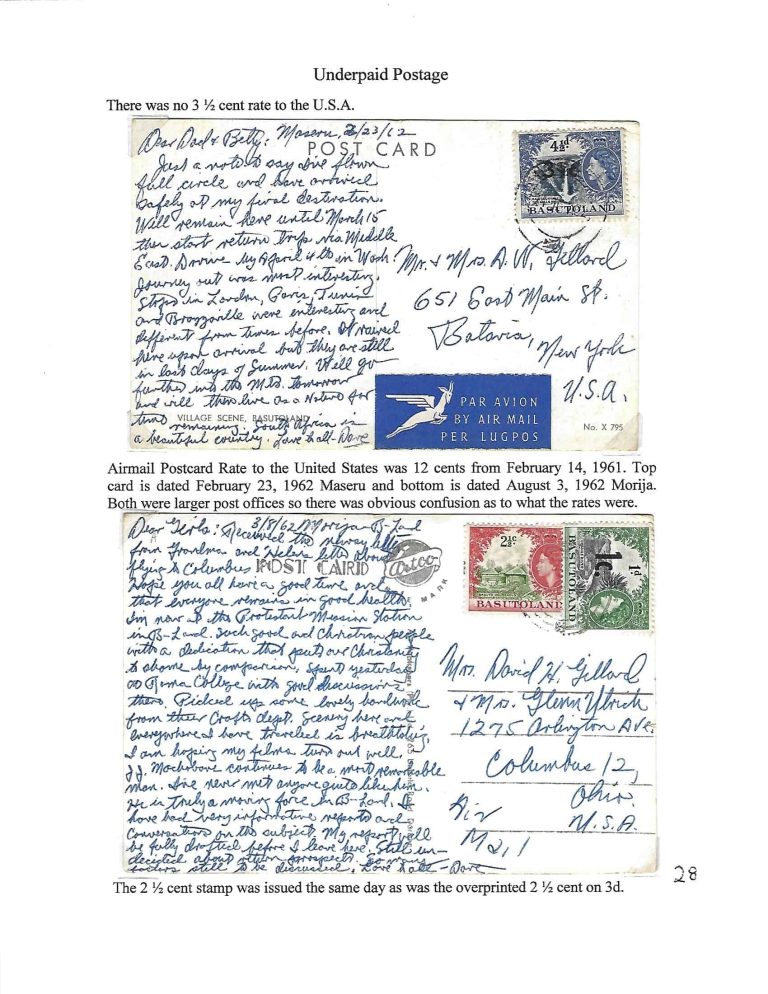 Underpaid Postage
There was no 3 ½ cent rate to the U.S.A.
Dear Dad & Betty: Maseru, 2/23/62
POST CARD
Just a note to say I've flown
full circle and have arrived
safely at my final destination.
Will remain here until March 15
then start return trip via Middle
East. Arrive by April 4 in Wash.
Journey out was most interesting.
Stops in London, Paris, Tunis
and Brazzaville were interesting and
different from times before. It rained
here upon arrival but they are still
in last days of Summer. Will go
further into the Mts. tomorrow
and will then live as a Native for
time remaining. South Africa is
a beautiful country. Love to all - Dave
VILLAGE SCENE, BASUTOLAND
4½d
3½c
BASUTOLAND
Mr. & Mrs. D. W. Gillard
651 East Main St.
Batavia, New York
U.S.A.
PAR AVION
BY AIR MAIL
PER LUGPOS
No. X 795
Airmail Postcard Rate to the United States was 12 cents from February 14, 1961. Top
card is dated February 23, 1962 Maseru and bottom is dated August 3, 1962 Morija.
Both were larger post offices so there was obvious confusion as to what the rates were.
3/8/62 Morija B-Land
Dear Girls: Received the newsy letter
from Grandma and Helen's letter about
flying to Columbus
POST CARD
Artco
MARK
Hope you all have a good time and
that everyone remains in good health.
I'm now at the Protestant Mission Station
in B-Land. Such good and Christian people
with a dedication that puts our Christianity
to shame by comparison. Spent yesterday
at Roma College with good discussions
there. Picked up some lovely handwork
from their Crafts dept. Scenery here and
everywhere I have traveled is breathtaking.
I am hoping my films turn out well.
J.J. Machobane continues to be a most remarkable
man. I've never met anyone quite like him.
He is truly a moving force in B-Land. I
have had very informative reports and
conversations on the subject. My report will
be fully drafted before I leave here. Still un-
decided about return prospects. So many
factors still to be discussed. Love to all - Dave
2½c
BASUTOLAND
1c.
1d
BASUTOLAND
Mrs. David H. Gillard
& Mrs. Glenn Ulrich
1275 Arlington Ave.
Columbus 12,
Ohio.
U.S.A.
Air
Mail
The 2 ½ cent stamp was issued the same day as was the overprinted 2 ½ cent on 3d.
28